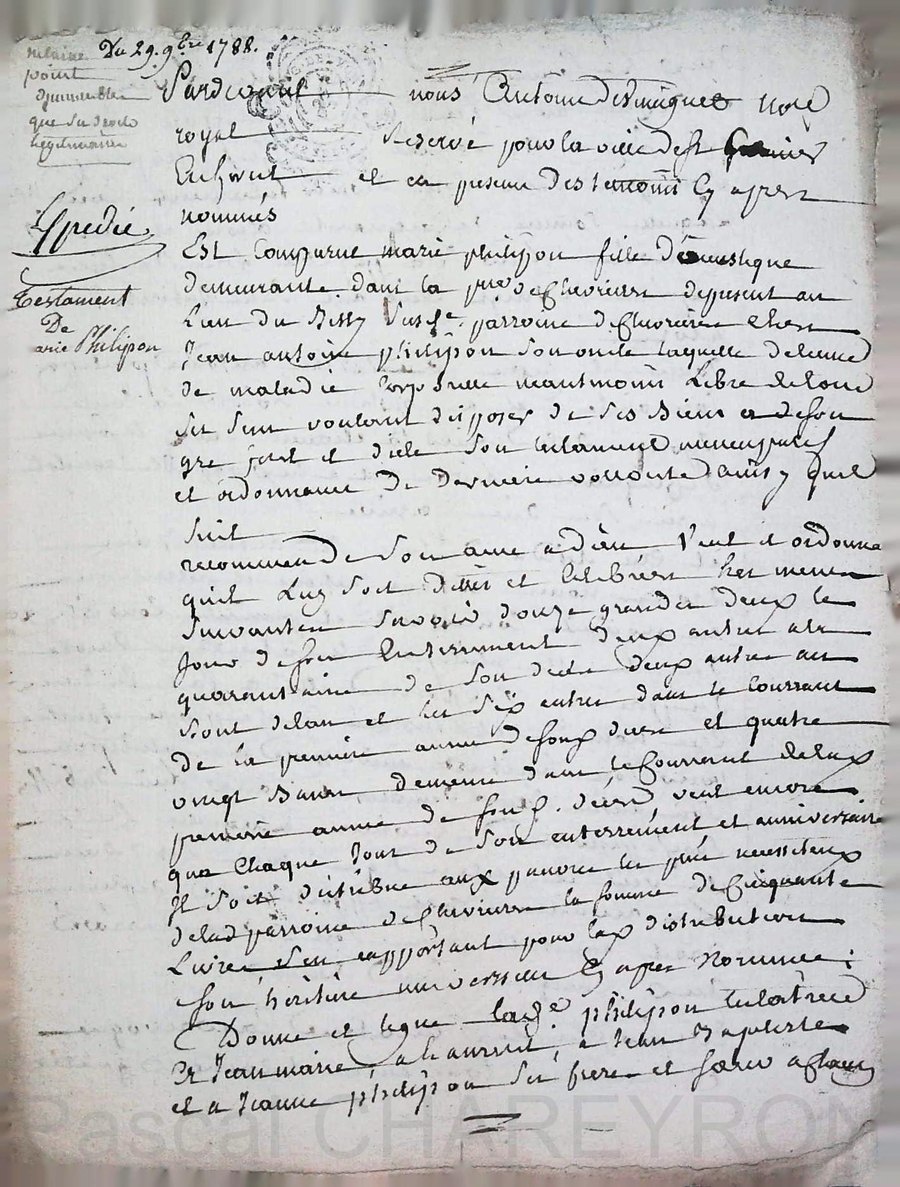 Du 29. 9bre 1788.
point
que ses droits
Expedié
Testament
De
marie Philipon
Pardevant nous Antoine Desmagnet nore
royal reservé pour la ville de st
et en presence des temoins cy apres
nommés
Est Comparue marie philipon fille Domestique
demeurante dans la psse de Chevrieres depresent au
Lieu du parroisse de Chevrieres Chez
Jean antoine philipon son oncle laquelle detenue
de maladie Corporelle neantmoins Libre de tous
ses sens voulant disposer de ses Biens a de son
gre fait et dicté son testament nuncupatif
et ordonnance de Derniere vollonté ainsy quil
suit
recommende son ame a dieu, Veut et ordonne
quil Luy soit dittes et Celebrées les messes
suivantes savoir douze grandes deux le
jour de son Enterrement deux autres a la
quarantaine de son decès deux autres au
bout de lan et les six autres dans le Courrant
de la premiere année de son deces et quatre
vingt Basses de même dans le Courrant de la
premiere année de son decés, veut encore
que Chaque Jour de son enterrement et anniversaire
Il soit distribué aux pauvres les plus necessiteux
de lad parroisse de Chevrieres la somme de Cinquante
Livres s'en rapportant pour la distribution
son heritiere universelle Cy apres nommée;
Donne et legue philipon
Et Jean marie, a Laurent, a Jean Baptiste
et a Jeanne philipon ses frere et soeur a Chacun
Pascal CHAREYRON